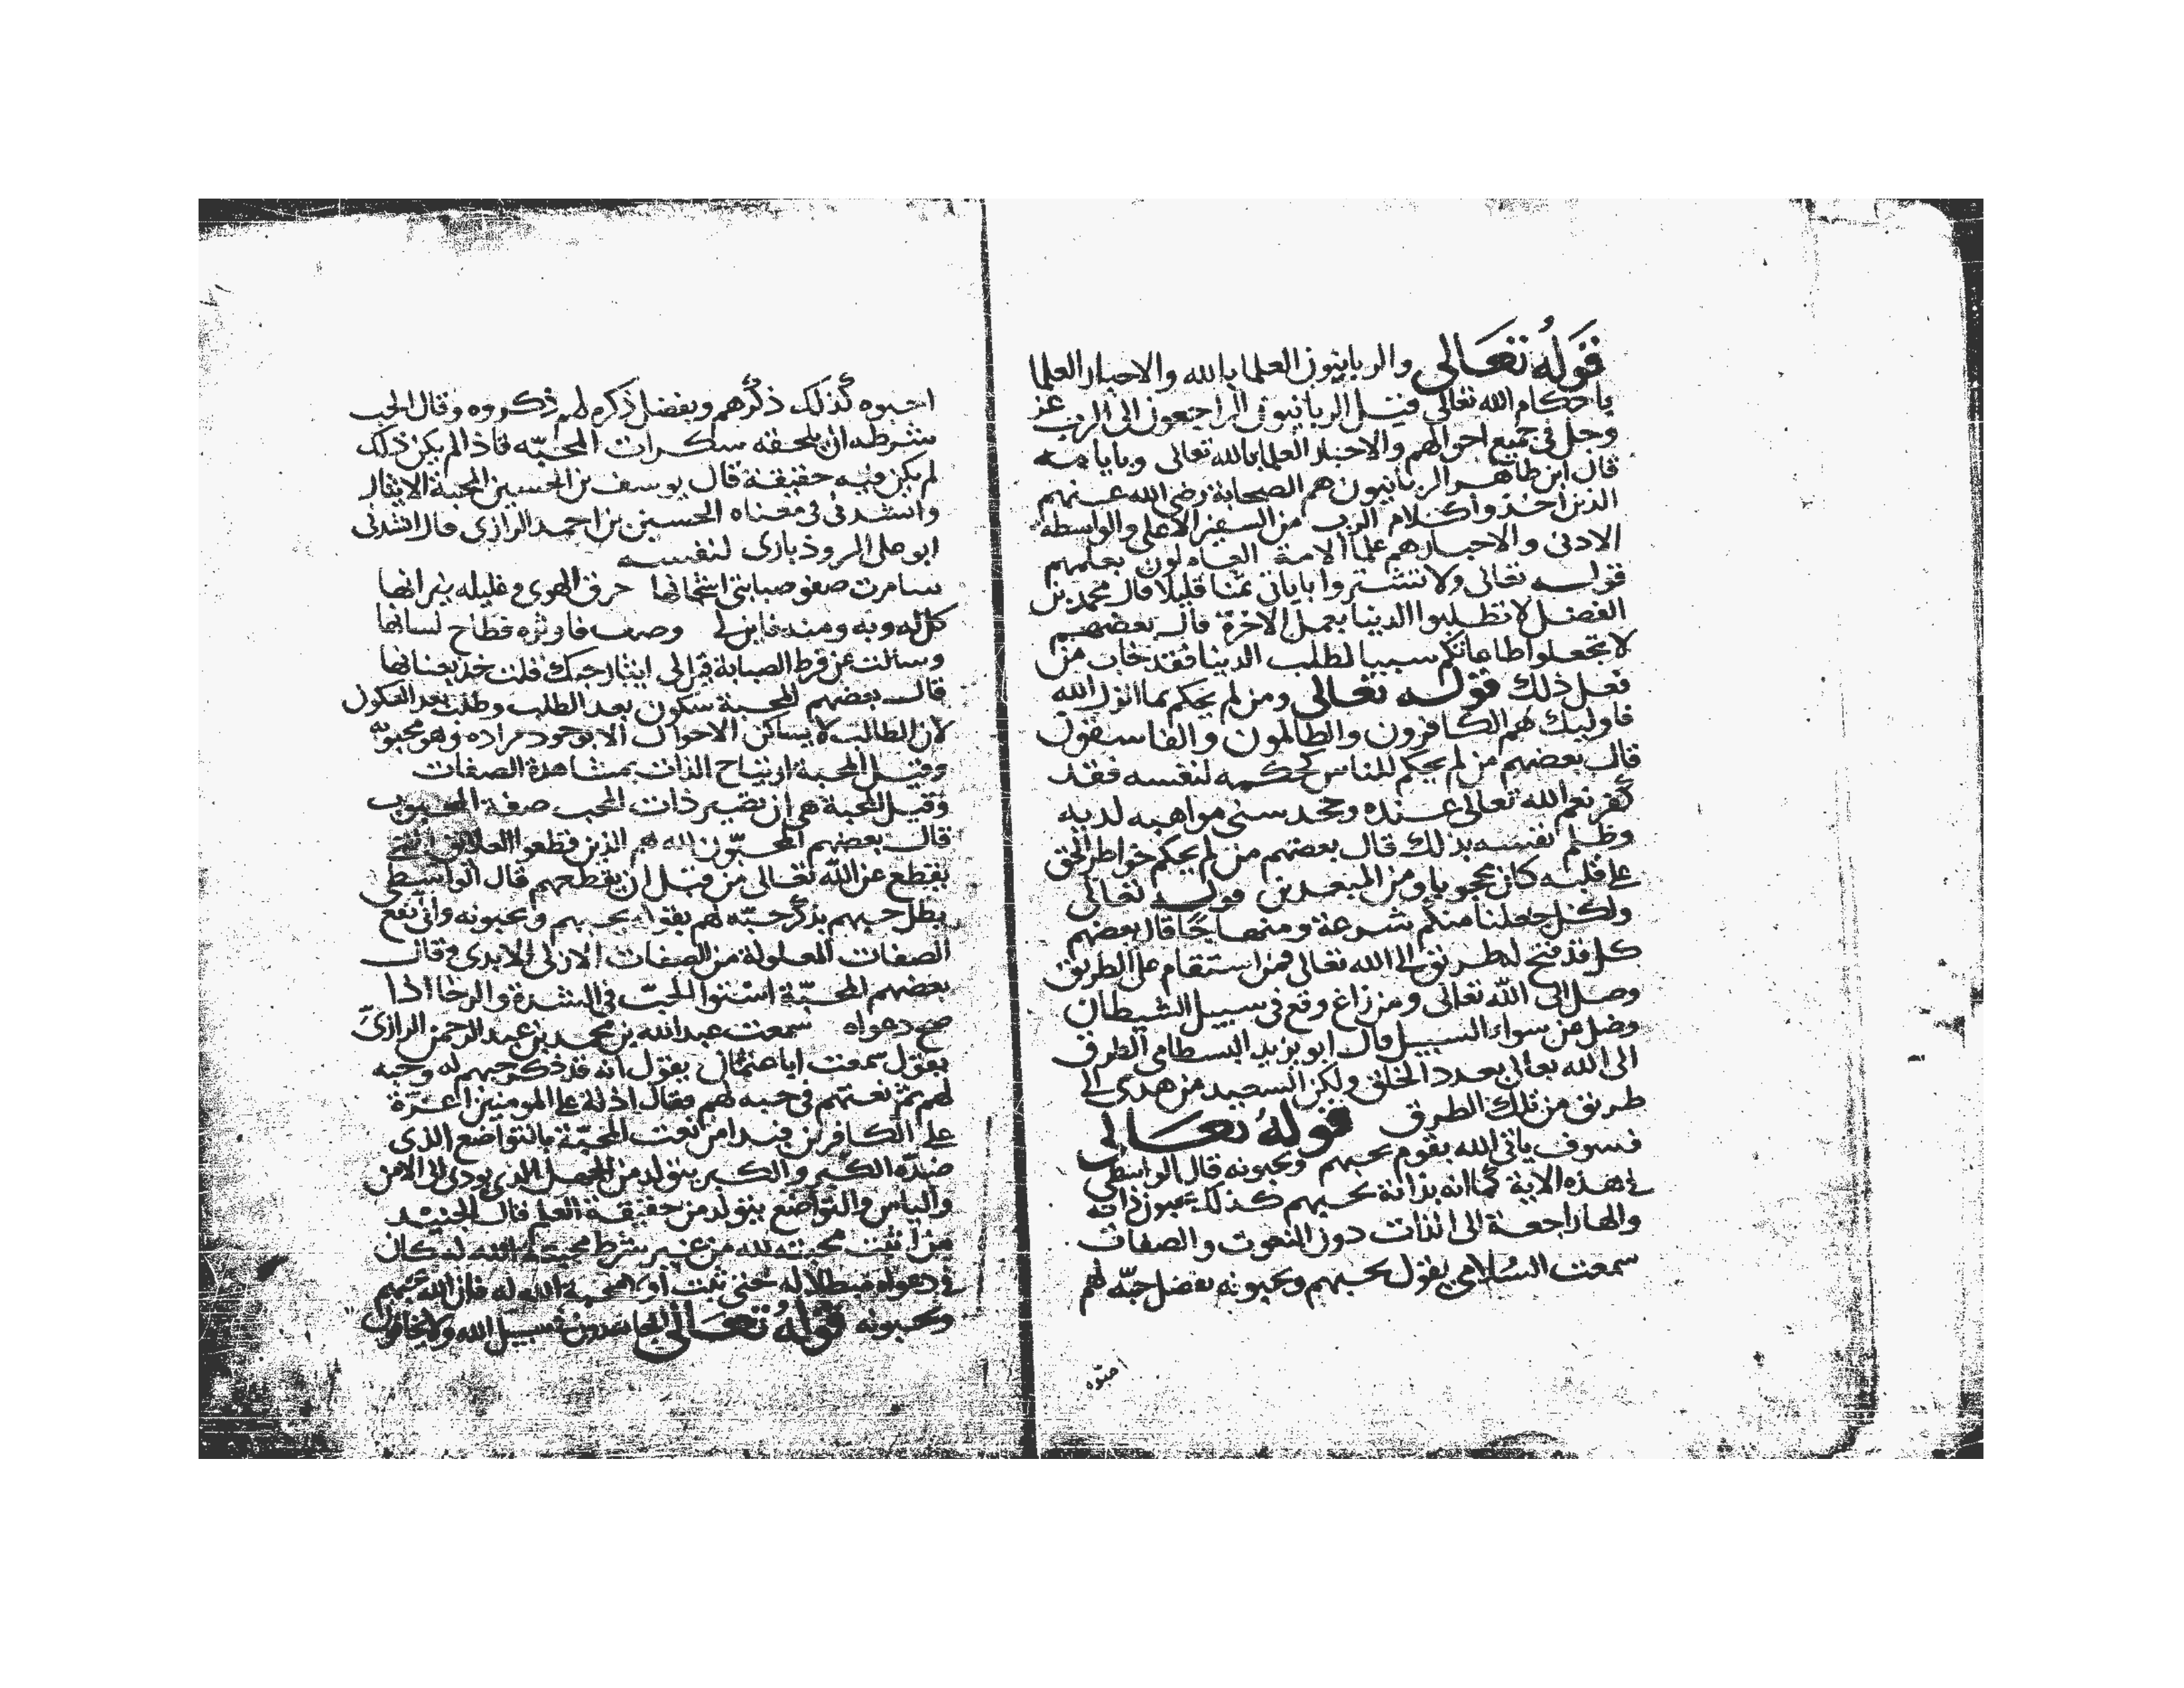 قوله تعالى والربانيون العلما بالله والاحبار العلما
باحكام الله تعالى قيل الربانيون الراجعون الى الرب عز
وجل في جميع احوالهم والاحبار العلما بالله تعالى وباياته
قال ابن طاهر الربانيون هم الصحابة رضي الله عنهم
الذين اخذوا كلام الرب من السفير الاعلى والواسطة
الادنى والاحبار هم علما الامة العاملون بعلمهم
قوله تعالى ولا تشتروا باياتي ثمنا قليلا قال محمد بن
الفضل لا تطلبوا الدنيا بعمل الاخرة قال بعضهم
لا تجعلوا طاعاتكم سببا لطلب الدنيا فقد خاب من
فعل ذلك قوله تعالى ومن لم يحكم بما انزل الله
فاوليك هم الكافرون والظالمون والفاسقون
قال بعضهم من لم يحكم للناس كحكمه لنفسه فقد
كفر نعم الله تعالى عنده وجحد سنى مواهبه لديه
وظلم نفسه بذلك قال بعضهم من لم يحكم خواطر الحق
على قلبه كان محجوبا ومن المبعدين قوله تعالى
ولكل جعلنا منكم شرعة ومنهاجا قال بعضهم
كل قد فتح له طريق الى الله تعالى فمن استقام على الطريق
وصل الى الله تعالى ومن زاغ وقع في سبيل الشيطان
وضل عن سواء السبيل قال ابو يزيد البسطامي الطرق
الى الله تعالى بعدد الخلق ولكن السعيد من هدى الى
طريق من تلك الطرق قوله تعالى
فسوف ياتي الله بقوم يحبهم ويحبونه قال الواسطي
في هذه الاية كما انه بذاته يحبهم كذلك يحبون ذاته
والها راجعة الى الذات دون النعوت والصفات
سمعت السلامي يقول يحبهم ويحبونه بفضل حبه لهم
احبوه
احبوه كذلك ذكرهم وبفضل ذكره لهم ذكروه وقال الحب
شرطه ان يلحقه سكرات المحبه فاذا لم يكن ذلك
لم يكن فيه حقيقة قال يوسف بن الحسين المحبة الايثار
وانشدني في معناه الحسين بن احمد الرازي قال انشدني
ابو على الروذباري لنفسه
سامرت صفو صبابتي اشجانها حرق الهوى وغليله نيرانها
وسالت عن فرط الصبابة قيل لى ايثار حبك قلت خذ بعنانها
قال بعضهم المحبة سكون بعد الطلب وطلب بعد السكون
لان الطالب لا يساكن الاحوال الا بوجود مراده وهو محبوبه
وقيل المحبة ارتياح الذات بمشاهدة الصفات
وقيل المحبة هي ان تصير ذات المحب صفة المحبوب
قال بعضهم المحبون لله هم الذين قطعوا العلائق التي
يقطع عن الله تعالى من قبل ان يقطعهم قال الواسطي
بطل حبهم بذكر حبه لهم بقوله يحبهم ويحبونه وانى تقع
الصفات المعلولة من الصفات الازلى الابدى وقال
بعضهم المحبة استوا الحب في الشدة والرخا اذا
صح دعواه سمعت عبد الله بن محمد بن عبد الرحمن الرازي
يقول سمعت ابا عثمان يقول انه قد ذكر حبهم له وحبه
لهم ثم نعتهم في حبه لهم فقال اذلة على المومنين اعزة
على الكافرين فبدا من نعت المحبة بالتواضع الذى
ضده الكبر والكبر يتولد من الجهل الذي يودى الى الامن
والياس والتواضع يتولد من حقيقة العلم قال الجنيد
من اثبت محبته لله من غير شرط محبة الله له كان
في دعواه مبطلا حتى يثبت اولا محبة الله له قال الله يحبهم
ويحبونه قوله تعالى يجاهدون في سبيل الله ولا يخافون